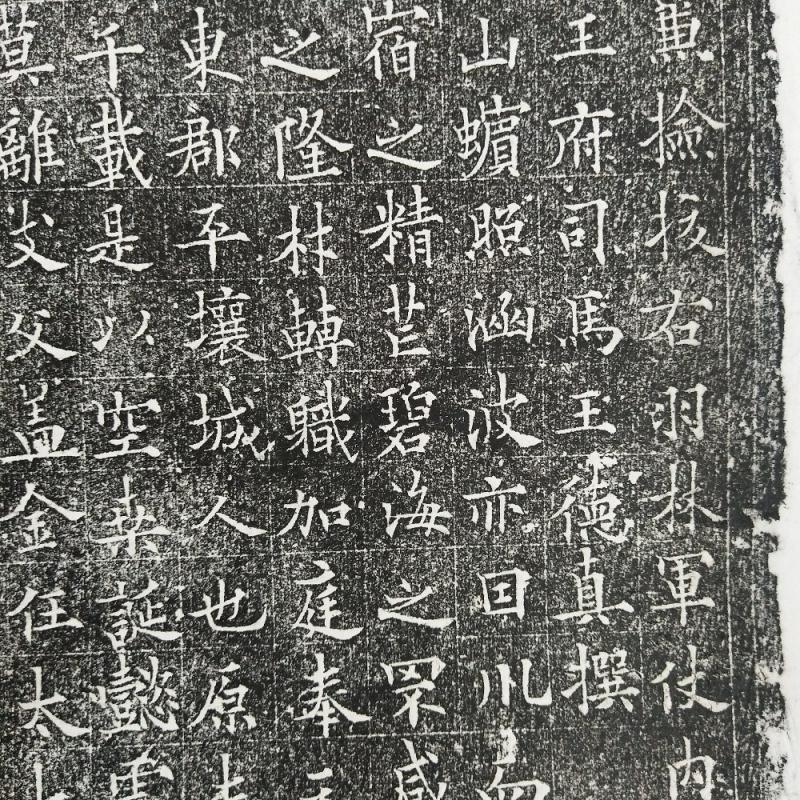 兼撿挍右羽林軍仗内
王府司馬王德真撰
山蠙照涵波亦曰川而
宿之精芒碧海之罘感
之隆材轉職加庭奉
東郡平壤城人也原
千載是以空桒誕懿
莫離支父蓋金任太